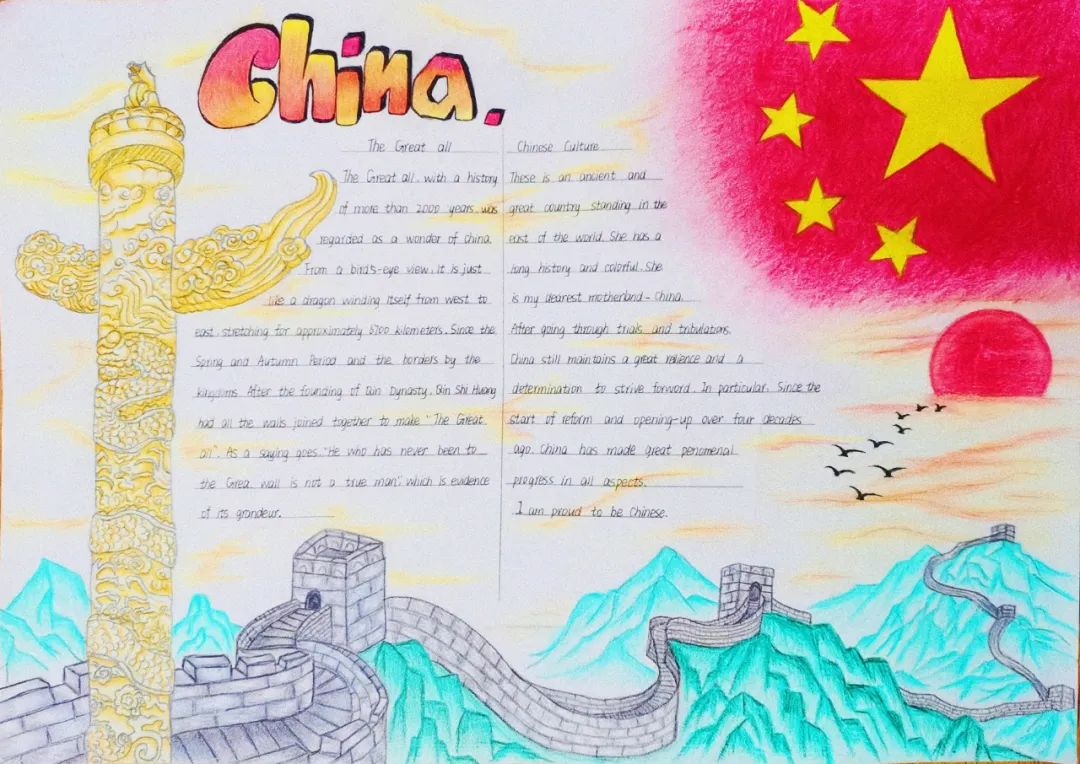 China.
The Great all
The Great all, with a history
of more than 2000 years, was
regarded as a wonder of china.
From a bird's-eye view, it is just
like a dragon winding itself from west to
east, stretching for approximately 6700 kilometers. Since the
Spring and Autumn Period and the borders by the
kingdoms. After the founding of Qin Dynasty, Qin Shi Huang
had all the walls joined together to make "The Great
all". As a saying goes, "He who has never been to
the Grea wall is not a true man", which is evidence
of its grandeur.
Chinese Culture
These is an ancient and
great country standing in the
east of the world. She has a
long history and colorful. She
is my dearest motherland - China.
After going through trials and tribulations,
China still maintains a great relience and a
determination to strive forward. In particular, Since the
start of reform and opening-up over four decades
ago. China has made great penomenal
progress in all aspects.
I am proud to be Chinese.